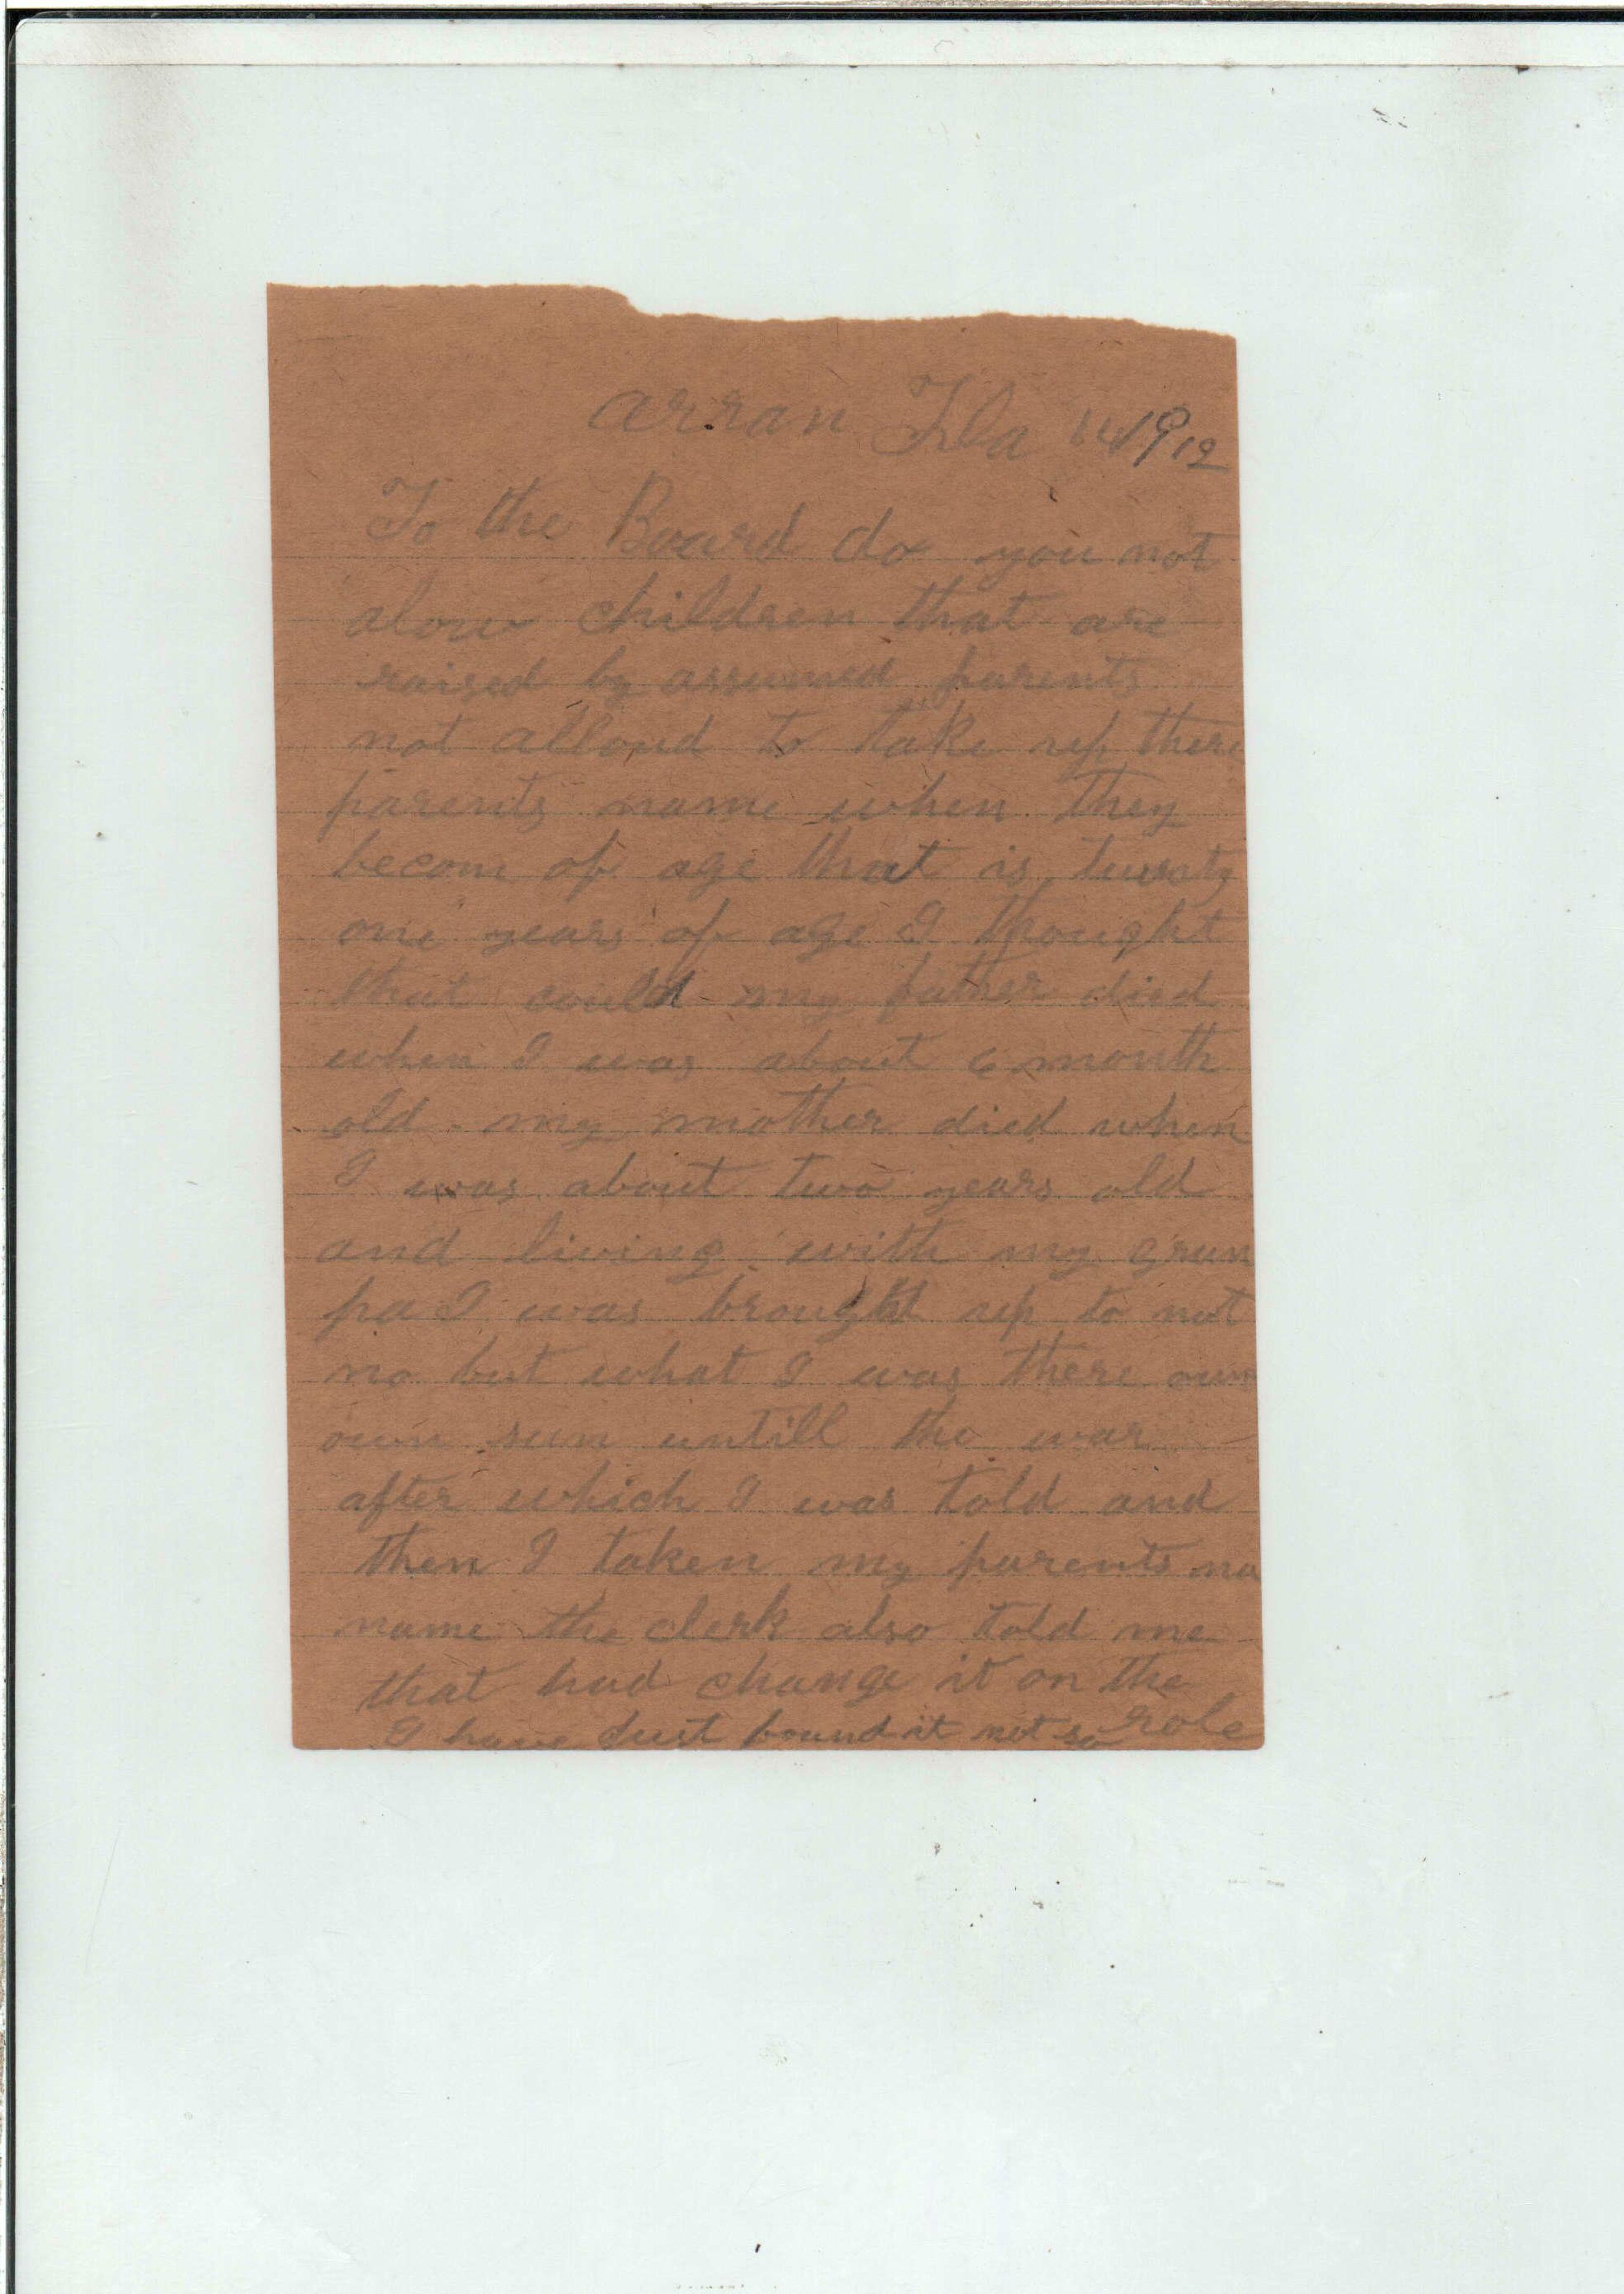 arran Fla 1912
To the Board do you not
alow children that are
raised by assumed parents
not alloud to take up there
parents name when they
become of age that is twenty
one years of age I thought
that could my father died
when I was about 6 month
old my mother died when
I was about two years old
and living with my gran
pa I was brought up to not
no but what I was there own
own sun untill the war
after which I was told and
then I taken my parents na
name the clerk also told me
that had change it on the
role
I have just found it not so